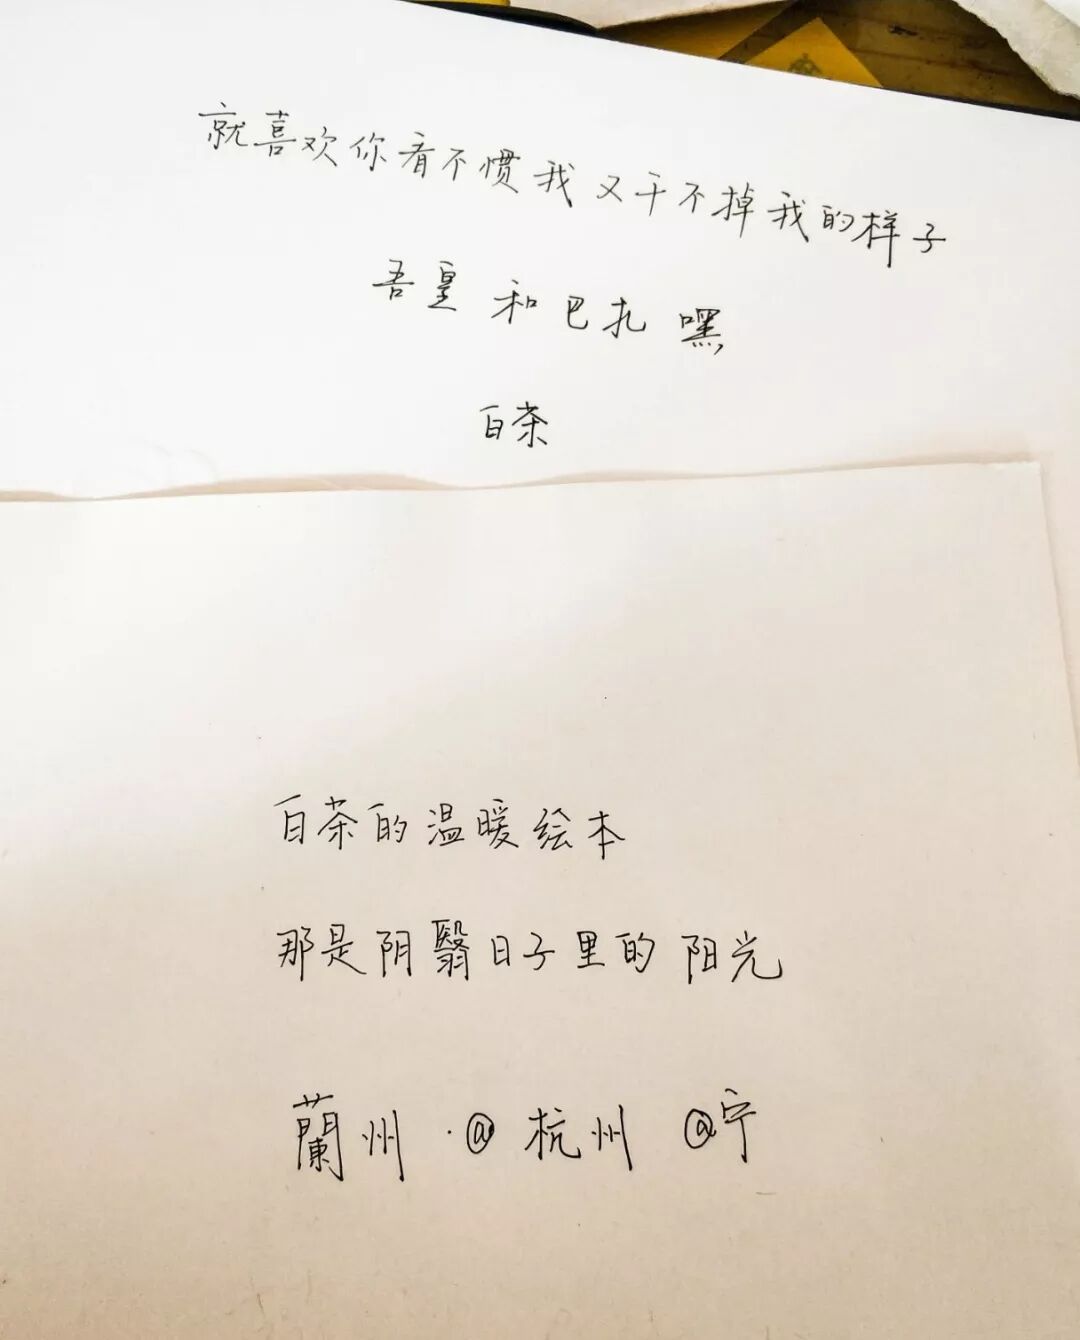 就喜欢你看不惯我又干不掉我的样子
吾皇 和巴扎 嘿
白茶
白茶的温暖绘本
那是阴翳日子里的 阳光
蘭州 ·@ 杭州 @宁